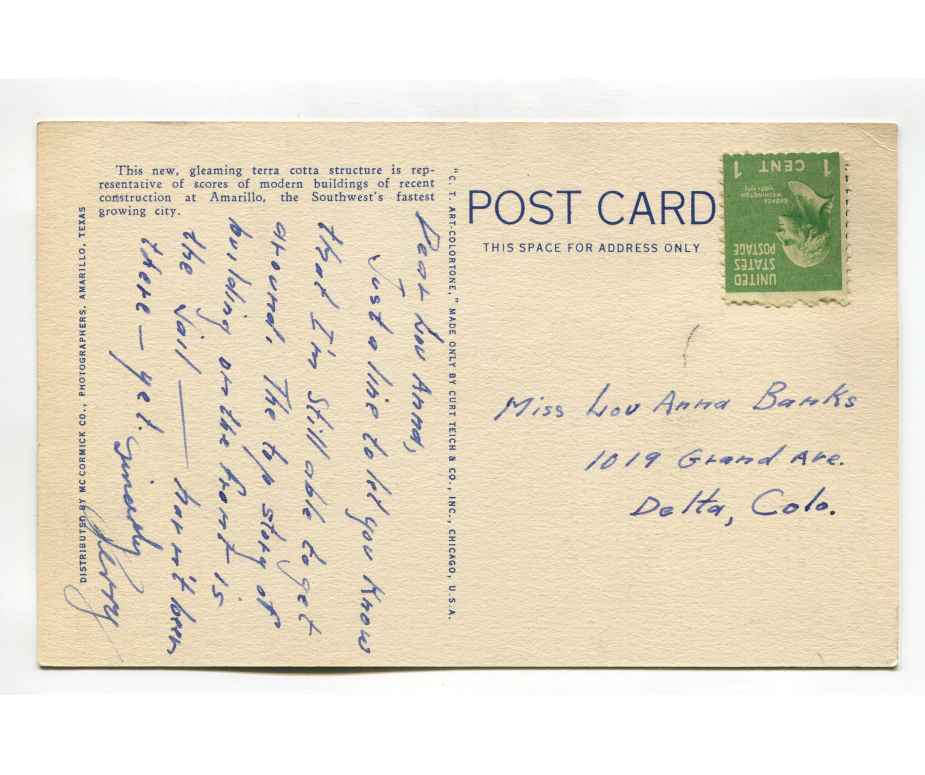 This new, gleaming terra cotta structure is rep-
resentative of scores of modern buildings of recent
construction at Amarillo, the Southwest's fastest
growing city.
DISTRIBUTED BY MC CORMICK CO., PHOTOGRAPHERS, AMARILLO, TEXAS
Dear Lou Anna,
Just a line to let you know
that I'm still able to get
around. The top story of
building on the front is
the Jail — haven't been
there — yet.
Sincerely
Jerry
"C. T. ART-COLORTONE," MADE ONLY BY CURT TEICH & CO., INC., CHICAGO, U.S.A.
POST CARD
THIS SPACE FOR ADDRESS ONLY
UNITED
STATES
POSTAGE
GEORGE
WASHINGTON
1 CENT 1
Miss Lou Anna Banks
1019 Grand Ave.
Delta, Colo.